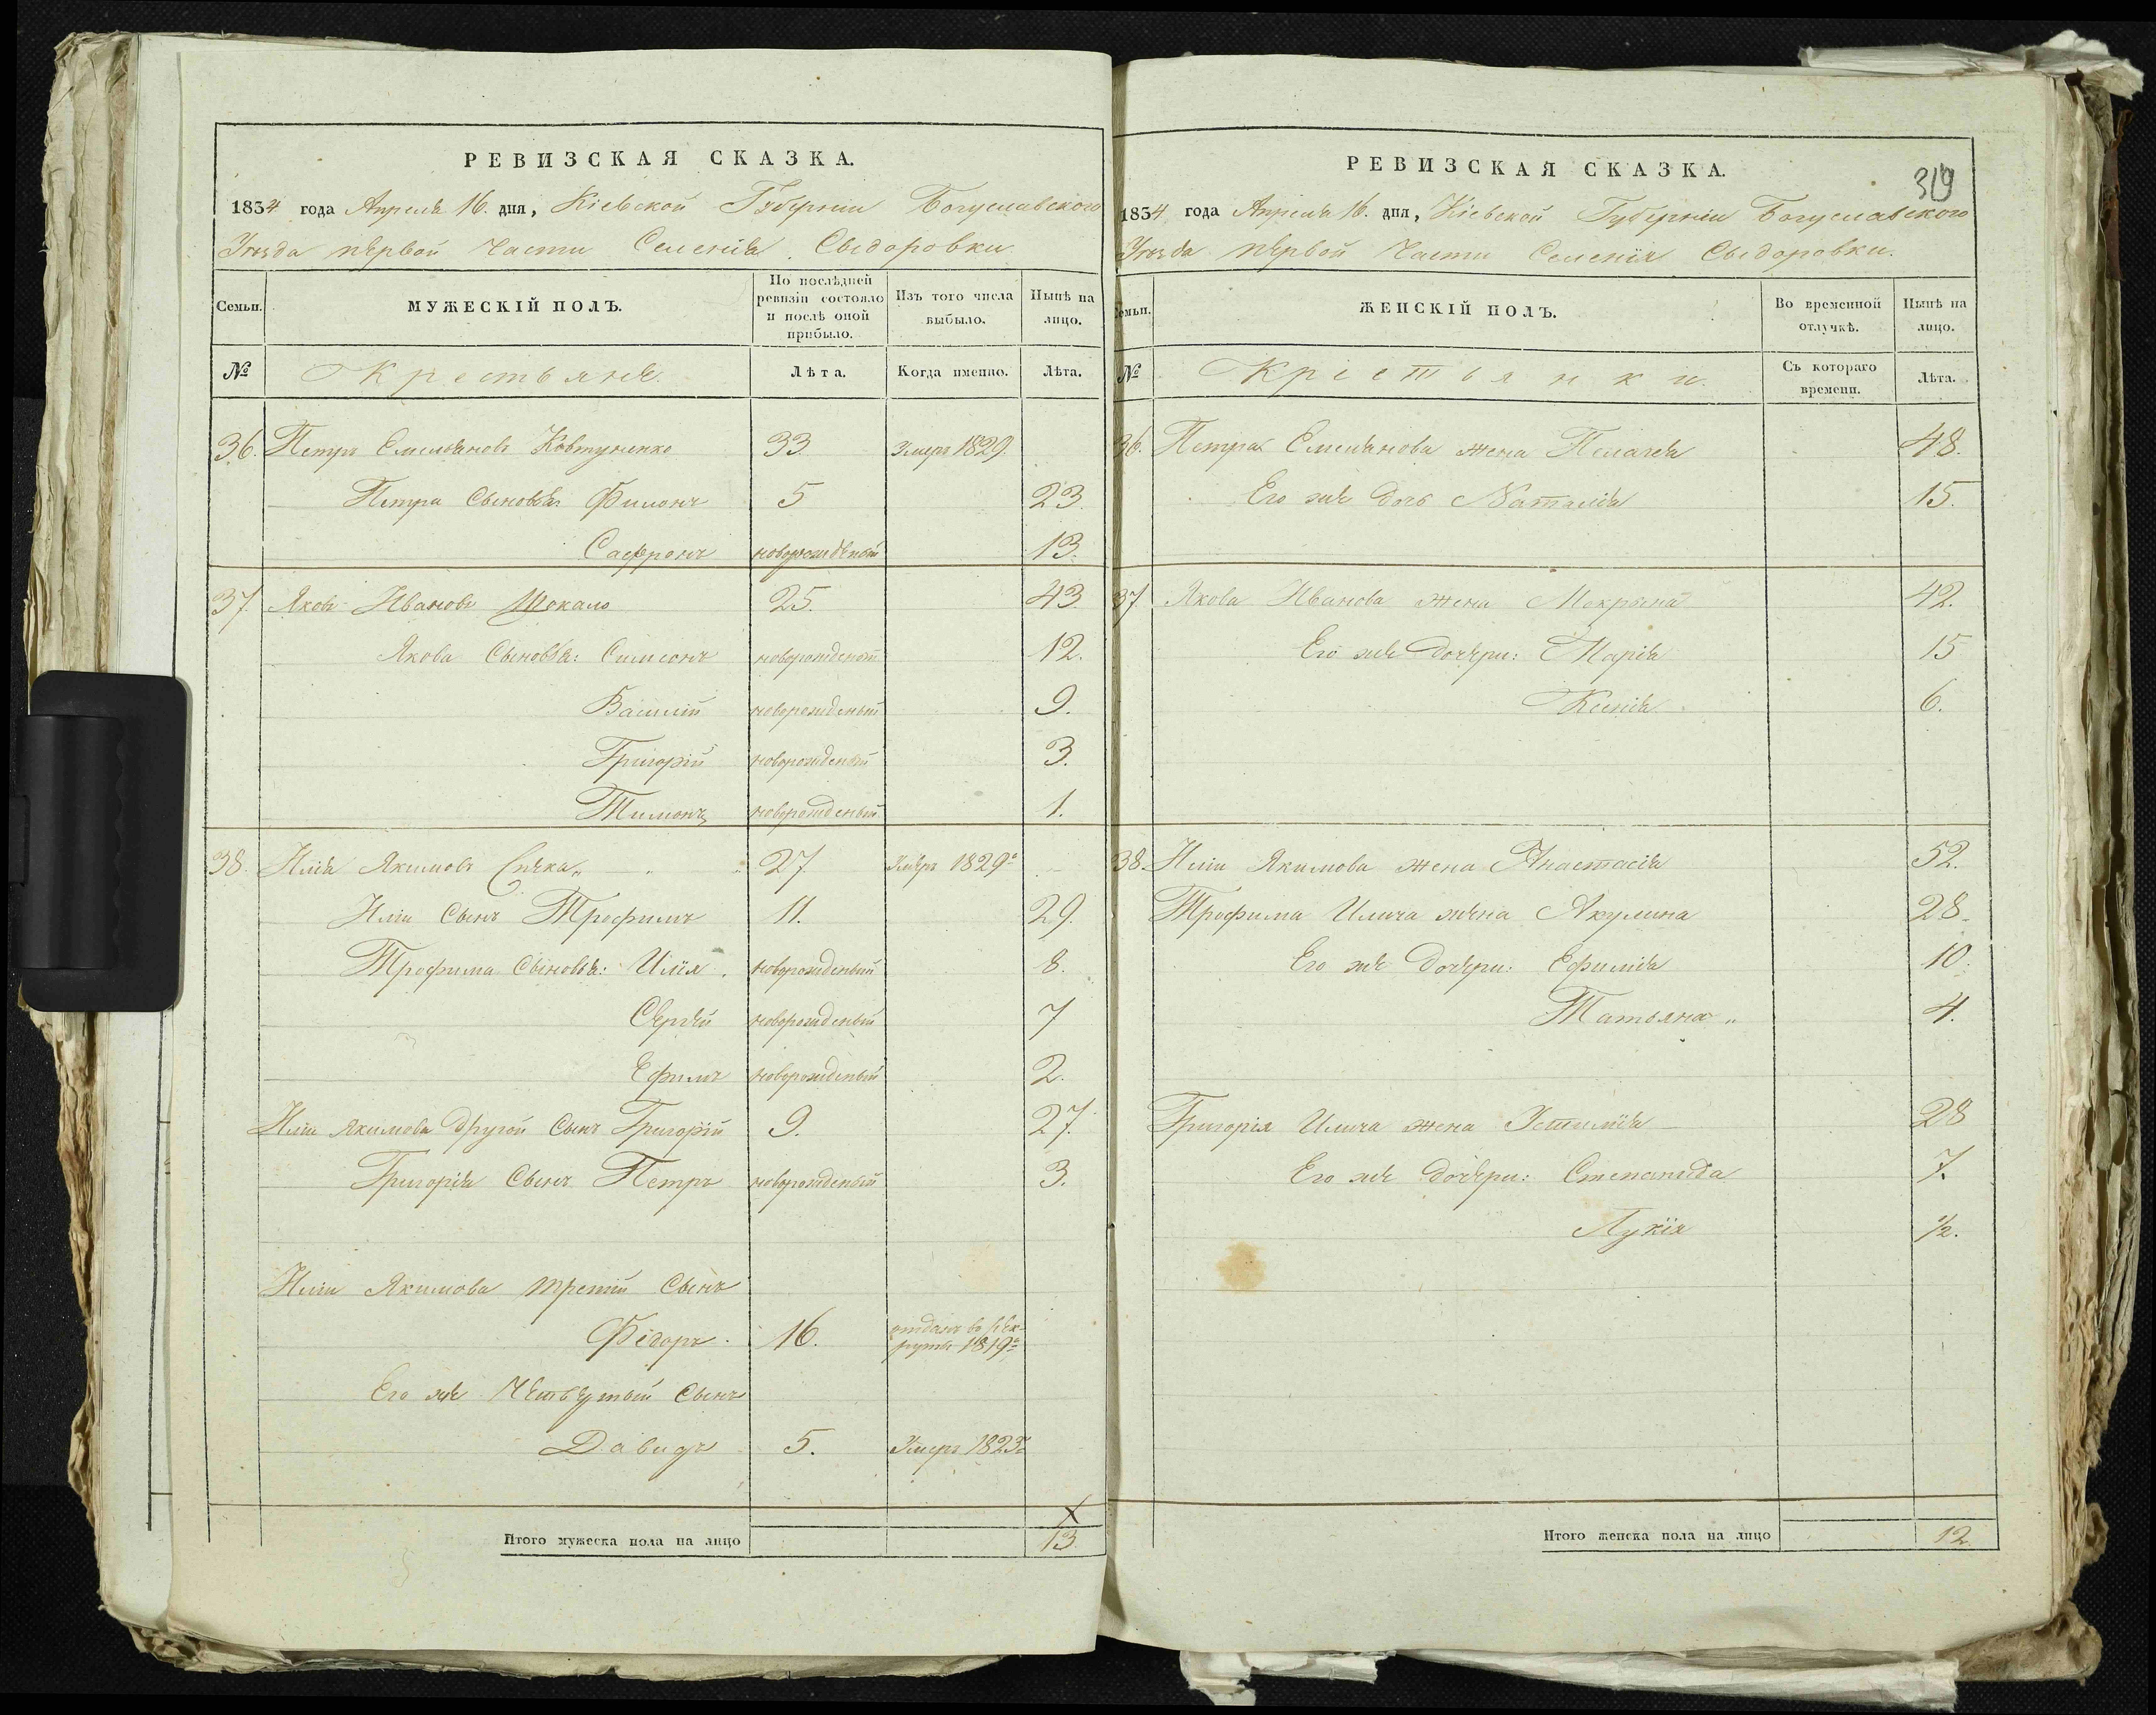 РЕВИЗСКАЯ СКАЗКА.
1834 года Апреля 16. дня, Кіевской Губерніи Богуславского
Уезда первой Части Селенія Сыдоровки
Семьи. МУЖЕСКІЙ ПОЛЪ. По послѣдней ревизіи состояло и послѣ оной прибыло. Изъ того числа выбыло. Нынѣ на лицо.
№ Крестьяне. Лѣта. Когда именно. Лѣта.
36. Петръ Емельяновъ Ковтуненко 33 Умеръ 1829
Петра Сыновья Филонъ 5 23.
Сафронъ новорожденый 13.
37. Яковъ Ивановъ Шокало 25. 43
Якова Сыновья: Симеонъ новорожденый 12.
Василій новорожденый 9.
Григорій новорожденый 3.
Тимонъ новорожденый 1.
38. Илія Якимовъ 27 Умеръ 1829го
Иліи Сынъ Трофимъ 11. 29.
Трофима Сыновья: Илія новорожденый 8.
Сергей новорожденый 7
Ефимъ новорожденый 2.
Иліи Якимова другой Сынъ Григорій 9. 27.
Григорія Сынъ Петръ новорожденый 3.
Иліи Якимова третій Сынъ
Федоръ 16. отданъ въ рек-
руты 1819го
Его же Четвертый Сынъ
Давидъ 5. Умеръ 1823го
Итого мужеска пола на лицо 13.
РЕВИЗСКАЯ СКАЗКА.
319
1834 года Апреля 16. дня, Кіевской Губерніи Богуславского
Уезда первой Части Селенія Сыдоровки.
Семьи. ЖЕНСКІЙ ПОЛЪ. Во временной отлучкѣ. Нынѣ на лицо.
№ Крестьянки. Съ котораго времени. Лѣта.
36. Петра Емельянова жена Пелагея 48.
Его же дочь Наталія 15.
37 Якова Иванова жена Мокрына 42.
Его же Дочери: Марія 15
Ксенія 6.
38. Иліи Якимова жена Анастасія 52.
Трофима Илича жена Акулина 28.
Его же Дочери: Ефимія 10.
Татьяна 4.
Григорія Илича жена Устимія 28
Его же дочери: Степанида 7.
Лукія 1/2.
Итого женска пола на лицо 12.